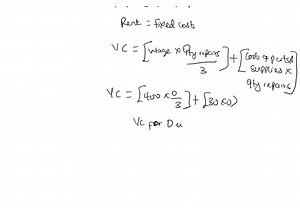 Rent = fixed costs
VC = [wage x Qty repairs / 3] + [Costs of parts & supplies x qty repairs]
VC = [400 x 0/3] + [30x0)
VC for 0 u